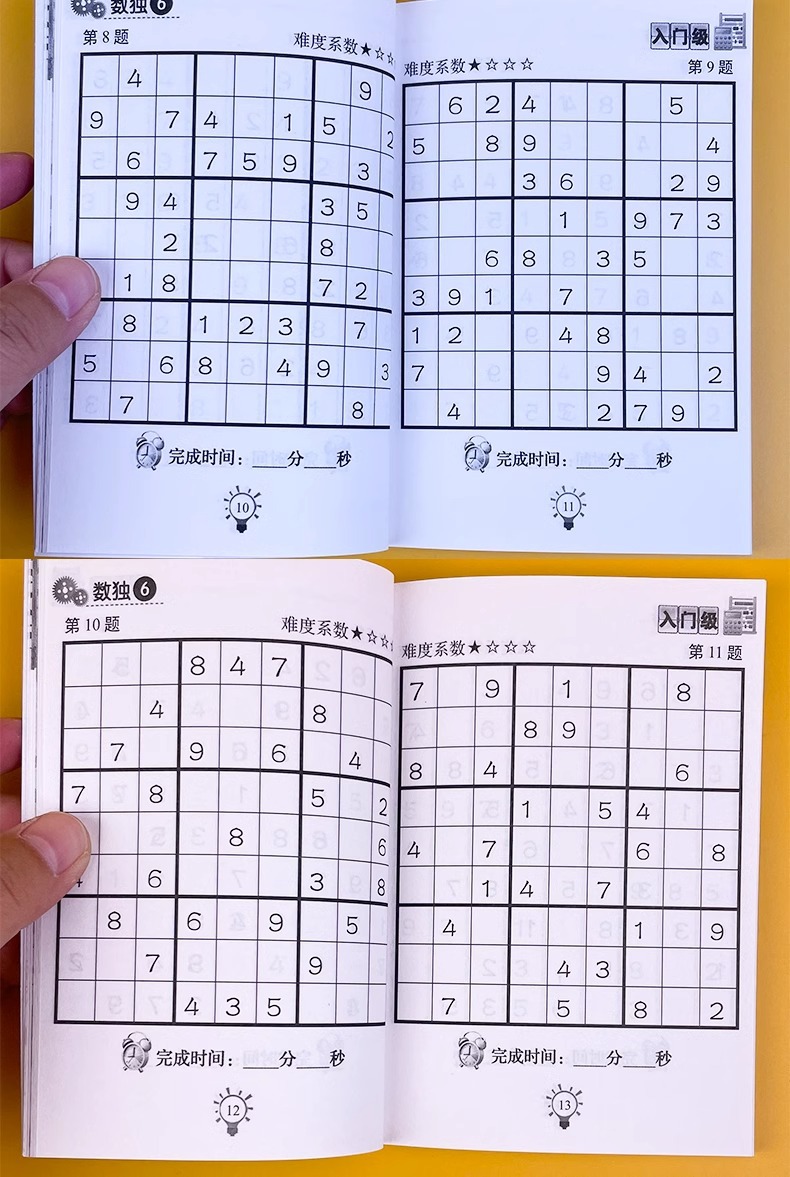 数独6
第8题 难度系数★☆☆
4 9
9 7 4 1 5 2
6 7 5 9 3
9 4 3 5
2 8
1 8 7 2
8 1 2 3 7
5 6 8 4 9 3
7 8
完成时间：____分____秒
10
入门级
难度系数★☆☆☆ 第9题
6 2 4 5
5 8 9 4
3 6 2 9
1 9 7 3
6 8 3 5
3 9 1 7
1 2 4 8
7 9 4 2
4 2 7 9
完成时间：____分____秒
11
数独6
第10题 难度系数★☆☆
8 4 7
4 8
7 9 6 4
7 8 5 2
8 6
4 6 3 8
8 6 9 5
7 9
4 3 5
完成时间：____分____秒
12
入门级
难度系数★☆☆☆ 第11题
7 9 1 8
8 9
8 4 6
1 5 4
4 7 6 8
1 4 7
4 1 9
4 3
7 5 8 2
完成时间：____分____秒
13